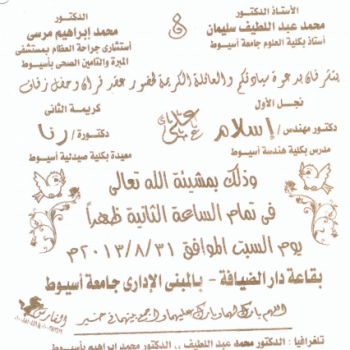 الأستاذ الدكتور
محمد عبد اللطيف سليمان
أستاذ بكلية العلوم جامعة أسيوط
الدكتور
محمد إبراهيم مرسى
أستشارى جراحة العظام بمستشفى
المبرة والتأمين الصحى بأسيوط
يتشرفان بدعوة سيادتكم والعائلة الكريمة لحضور عقد قران وحفل زفاف
نجل الأول
دكتور مهندس / إسلام
مدرس بكلية هندسة أسيوط
على
كريمة الثانى
دكتورة / رنا
معيدة بكلية صيدلية أسيوط
وذلك بمشيئة الله تعالى
فى تمام الساعة الثانية ظهراً
يوم السبت الموافق ٢٠١٣/٨/٣١م
بقاعة دار الضيافة - بالمبنى الإدارى جامعة أسيوط
اللهم بارك لهما وبارك عليهما واجمع بينهما فى خير
تلغرافيا : الدكتور محمد عبد اللطيف .. الدكتور محمد إبراهيم بأسيوط